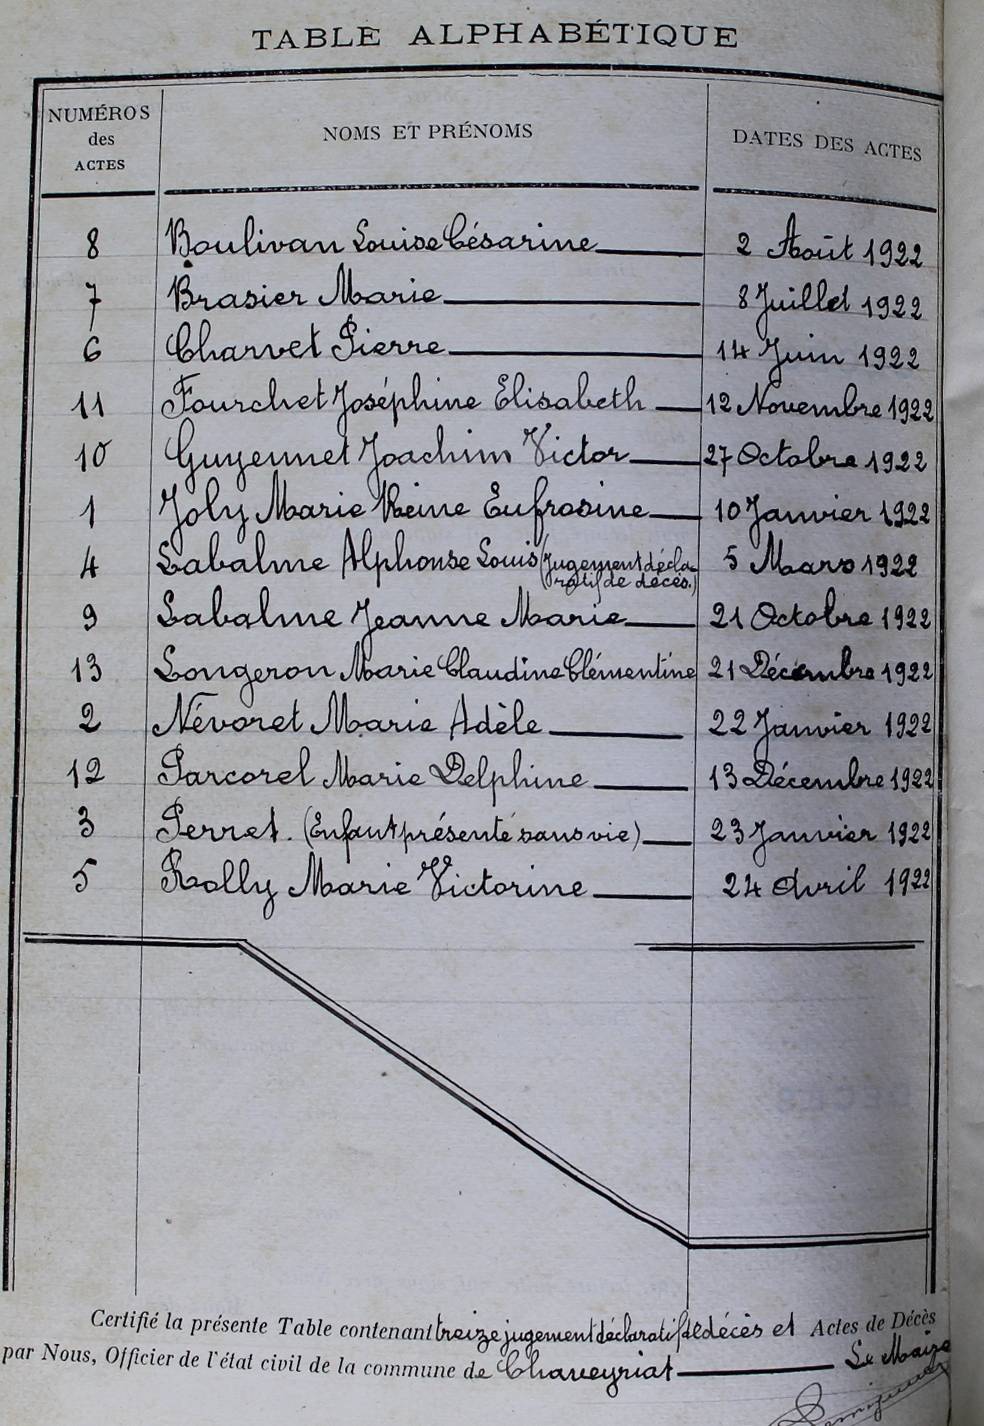 TABLE ALPHABÉTIQUE
NUMÉROS des ACTES NOMS ET PRÉNOMS DATES DES ACTES
8 Boulivan Louise Césarine 2 Août 1922
7 Brasier Marie 8 Juillet 1922
6 Charvet Pierre 14 Juin 1922
11 Fourchet Joséphine Elisabeth 12 Novembre 1922
10 Guyennet Joachim Victor 27 Octobre 1922
1 Joly Marie Reine Eufrosine 10 Janvier 1922
4 Labalme Alphonse Louis (Jugement décla- 5 Mars 1922
ratif de décès.)
9 Labalme Jeanne Marie 21 Octobre 1922
13 Longeron Marie Claudine Clémentine 21 Décembre 1922
2 Névoret Marie Adèle 22 Janvier 1922
12 Parcorel Marie Delphine 13 Décembre 1922
3 Perret. (Enfant présenté sans vie) 23 Janvier 1922
5 Rolly Marie Victorine 24 Avril 1922
Certifié la présente Table contenant treize jugement déclaratif de décès et Actes de Décès
par Nous, Officier de l'état civil de la commune de Chaveyriat Le Maire